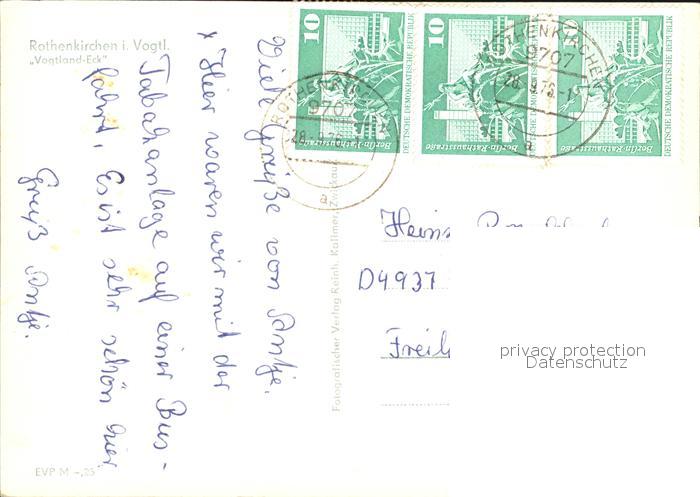 Rothenkirchen i. Vogtl.
„Vogtland-Eck"
Viele Grüße von Antje.
x Hier waren wir mit der
Tabakanlage auf einer Bus-
fahrt. Es ist sehr schön hier
Gruß Antje.
EVP M -,25
Fotografischer Verlag Reinh. Kallmer, Zwickau
10
DEUTSCHE DEMOKRATISCHE REPUBLIK
Berlin-Rathausstraße
10
DEUTSCHE DEMOKRATISCHE REPUBLIK
Berlin-Rathausstraße
DEUTSCHE DEMOKRATISCHE REPUBLIK
Berlin-Rathausstraße
ROTHENKIRCHEN
9707
a
ROTHENKIRCHEN
9707
a
Heinz
D4937
Freih
privacy protection
Datenschutz